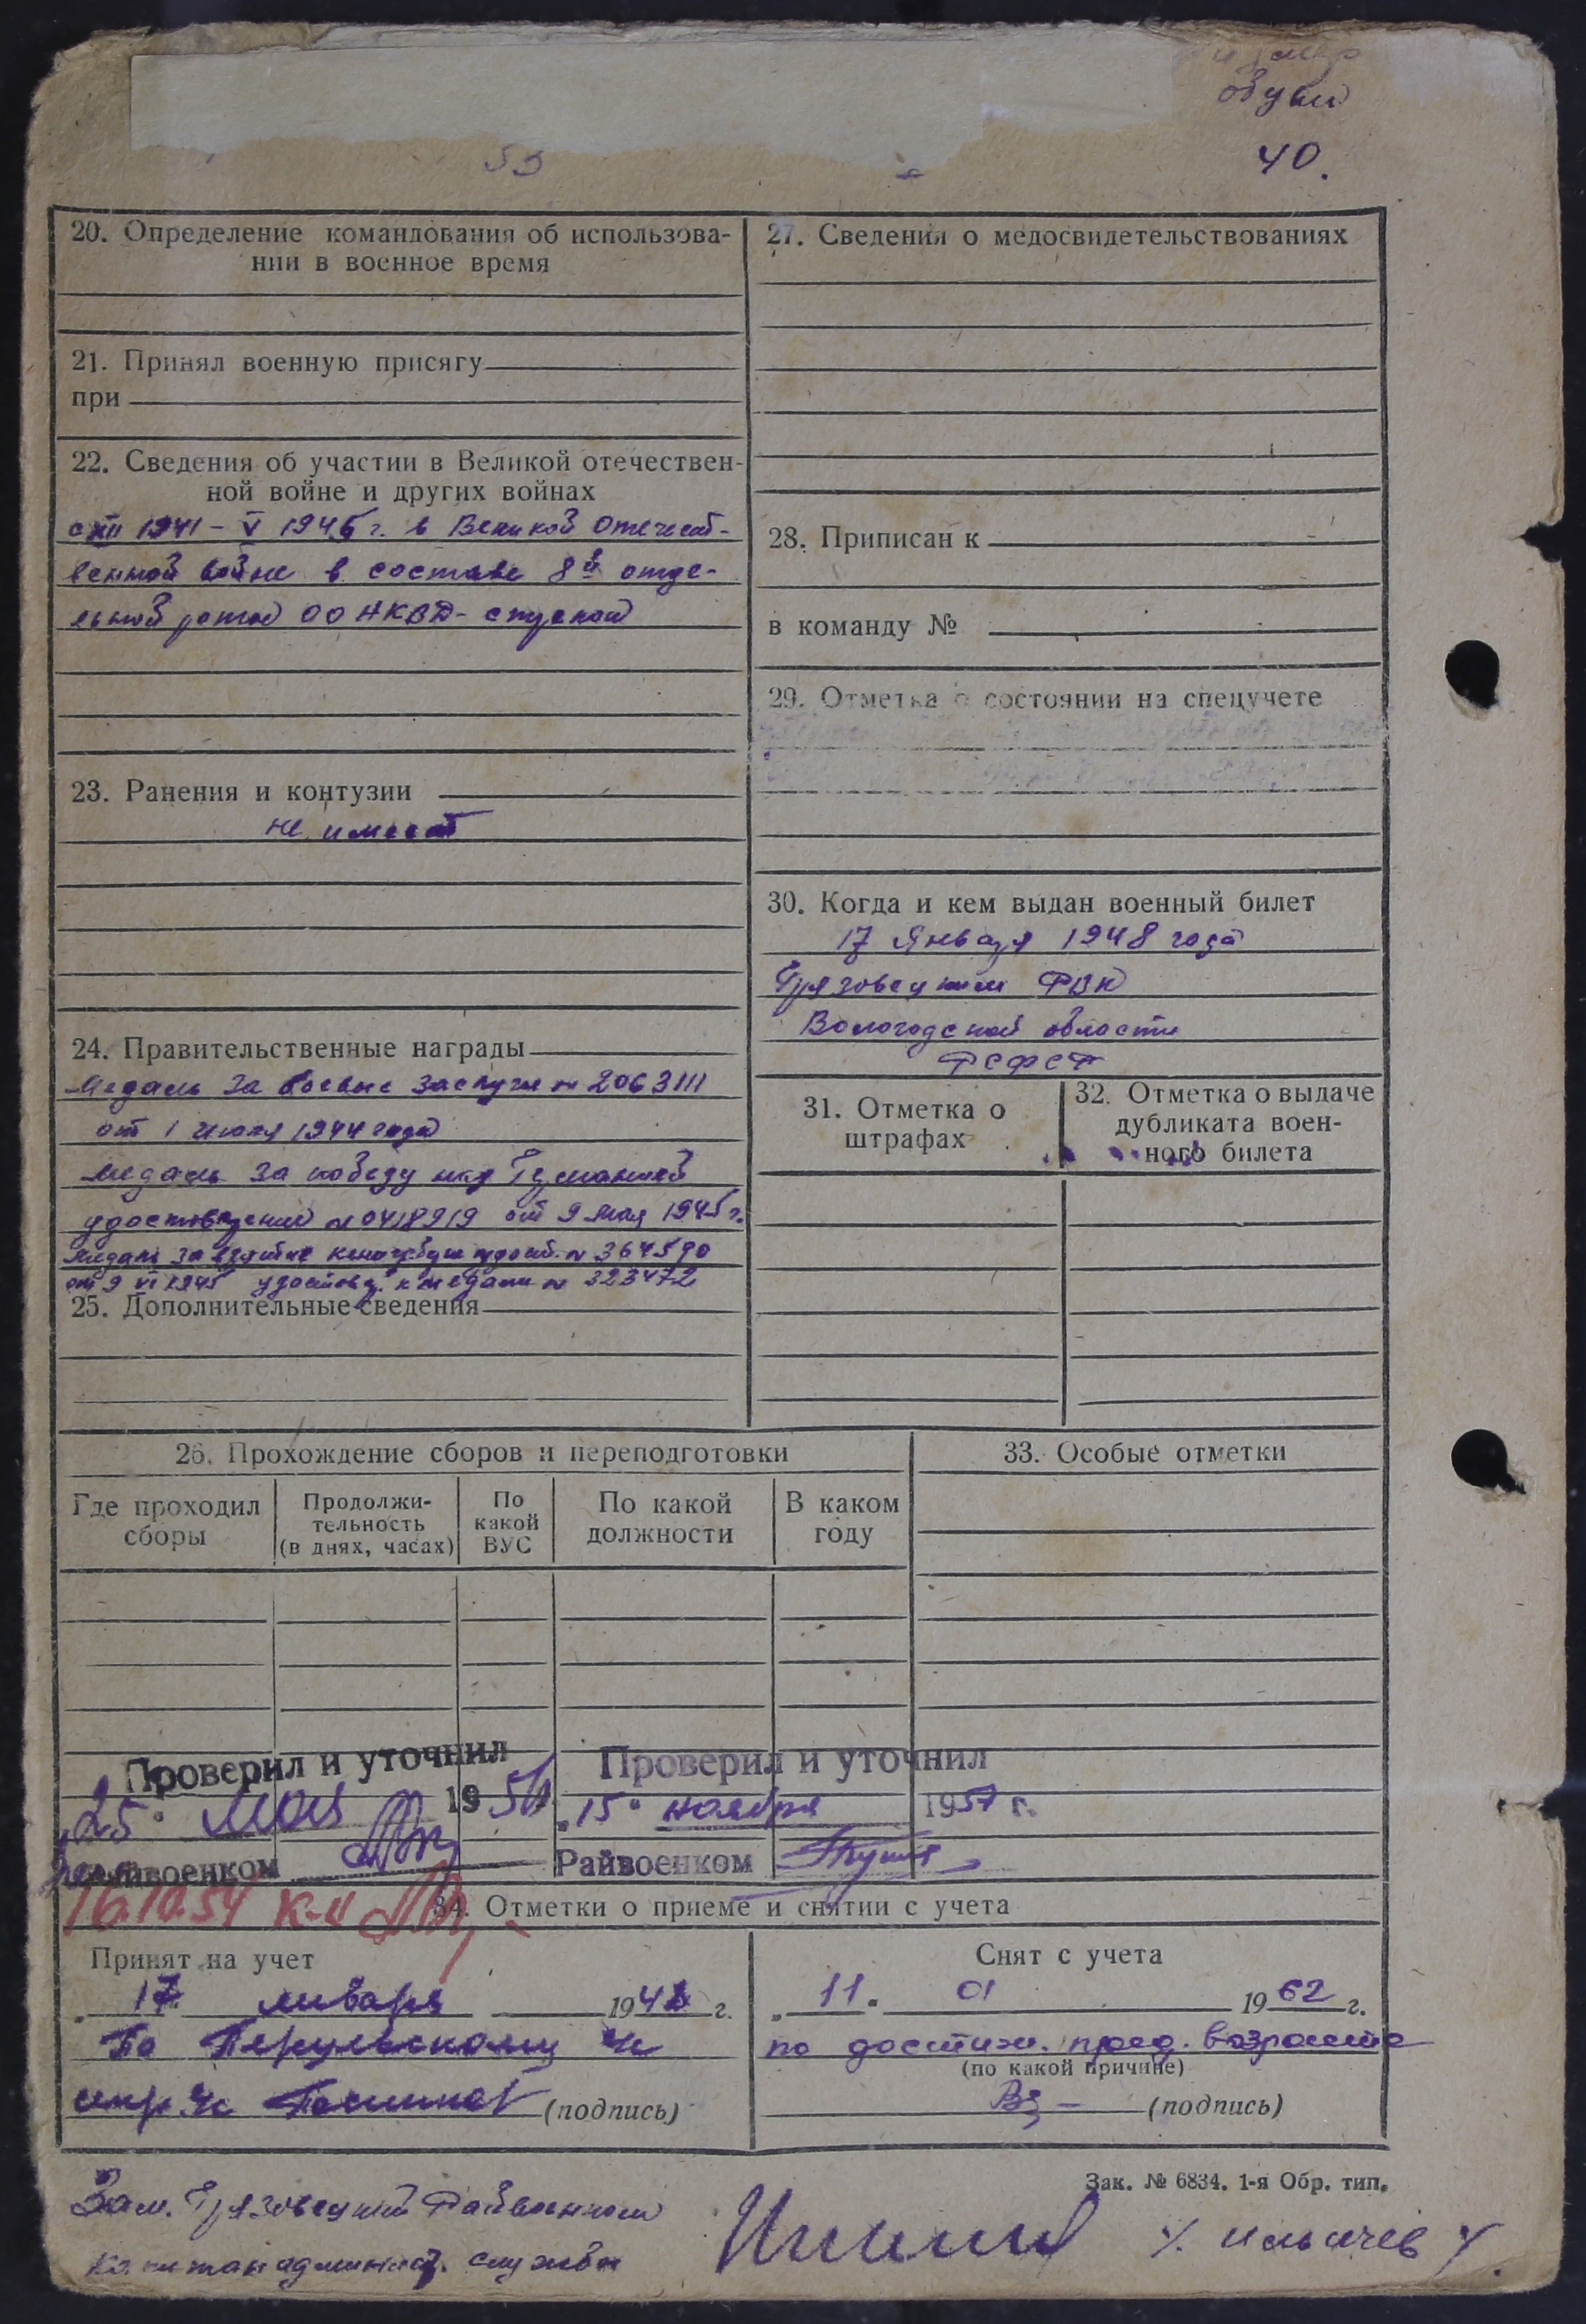 размер
обуви
40.
20. Определение командования об использова-
нии в военное время
21. Принял военную присягу
при
22. Сведения об участии в Великой отечествен-
ной войне и других войнах
с XII 1941 – V 1945 г. в Великой Отечест-
венной войне в составе 8й отде-
льной роты ОО НКВД -
23. Ранения и контузии
не имеет
24. Правительственные награды
Медаль За боевые заслуги № 2063111
от 1 июля 1944 года
медаль За победу над Германией
удостоверение № 0418919 от 9 мая 1945 г.
медаль за взятие удост. № 364590
от 9 VI 1945 удостов. к медали № 323472
25. Дополнительные сведения
26. Прохождение сборов и переподготовки
Где проходил
сборы
Продолжи-
тельность
(в днях, часах)
По
какой
ВУС
По какой
должности
В каком
году
27. Сведения о медосвидетельствованиях
28. Приписан к
в команду №
29. Отметка о состоянии на спецучете
30. Когда и кем выдан военный билет
17 Января 1948 года
Грязовецким РВК
Вологодской области
РСФСР
31. Отметка о
штрафах
32. Отметка о выдаче
дубликата воен-
ного билета
33. Особые отметки
Проверил и уточнил
25 " мая 195
Райвоенком
Проверил и уточнил
„15" ноября 1957 г.
Райвоенком
16.10.54
34. Отметки о приеме и снятии с учета
Принят на учет
„ 17 " января 1948 г.
По
(подпись)
Снят с учета
„ 11 " 01 1962 г.
по достиж. пред. возраста
(по какой причине)
(подпись)
Зак. № 6834. 1-я Обр. тип.
Зам. Грязовецкий Райвоенком
капитан админист. службы
/. Ильичев /.